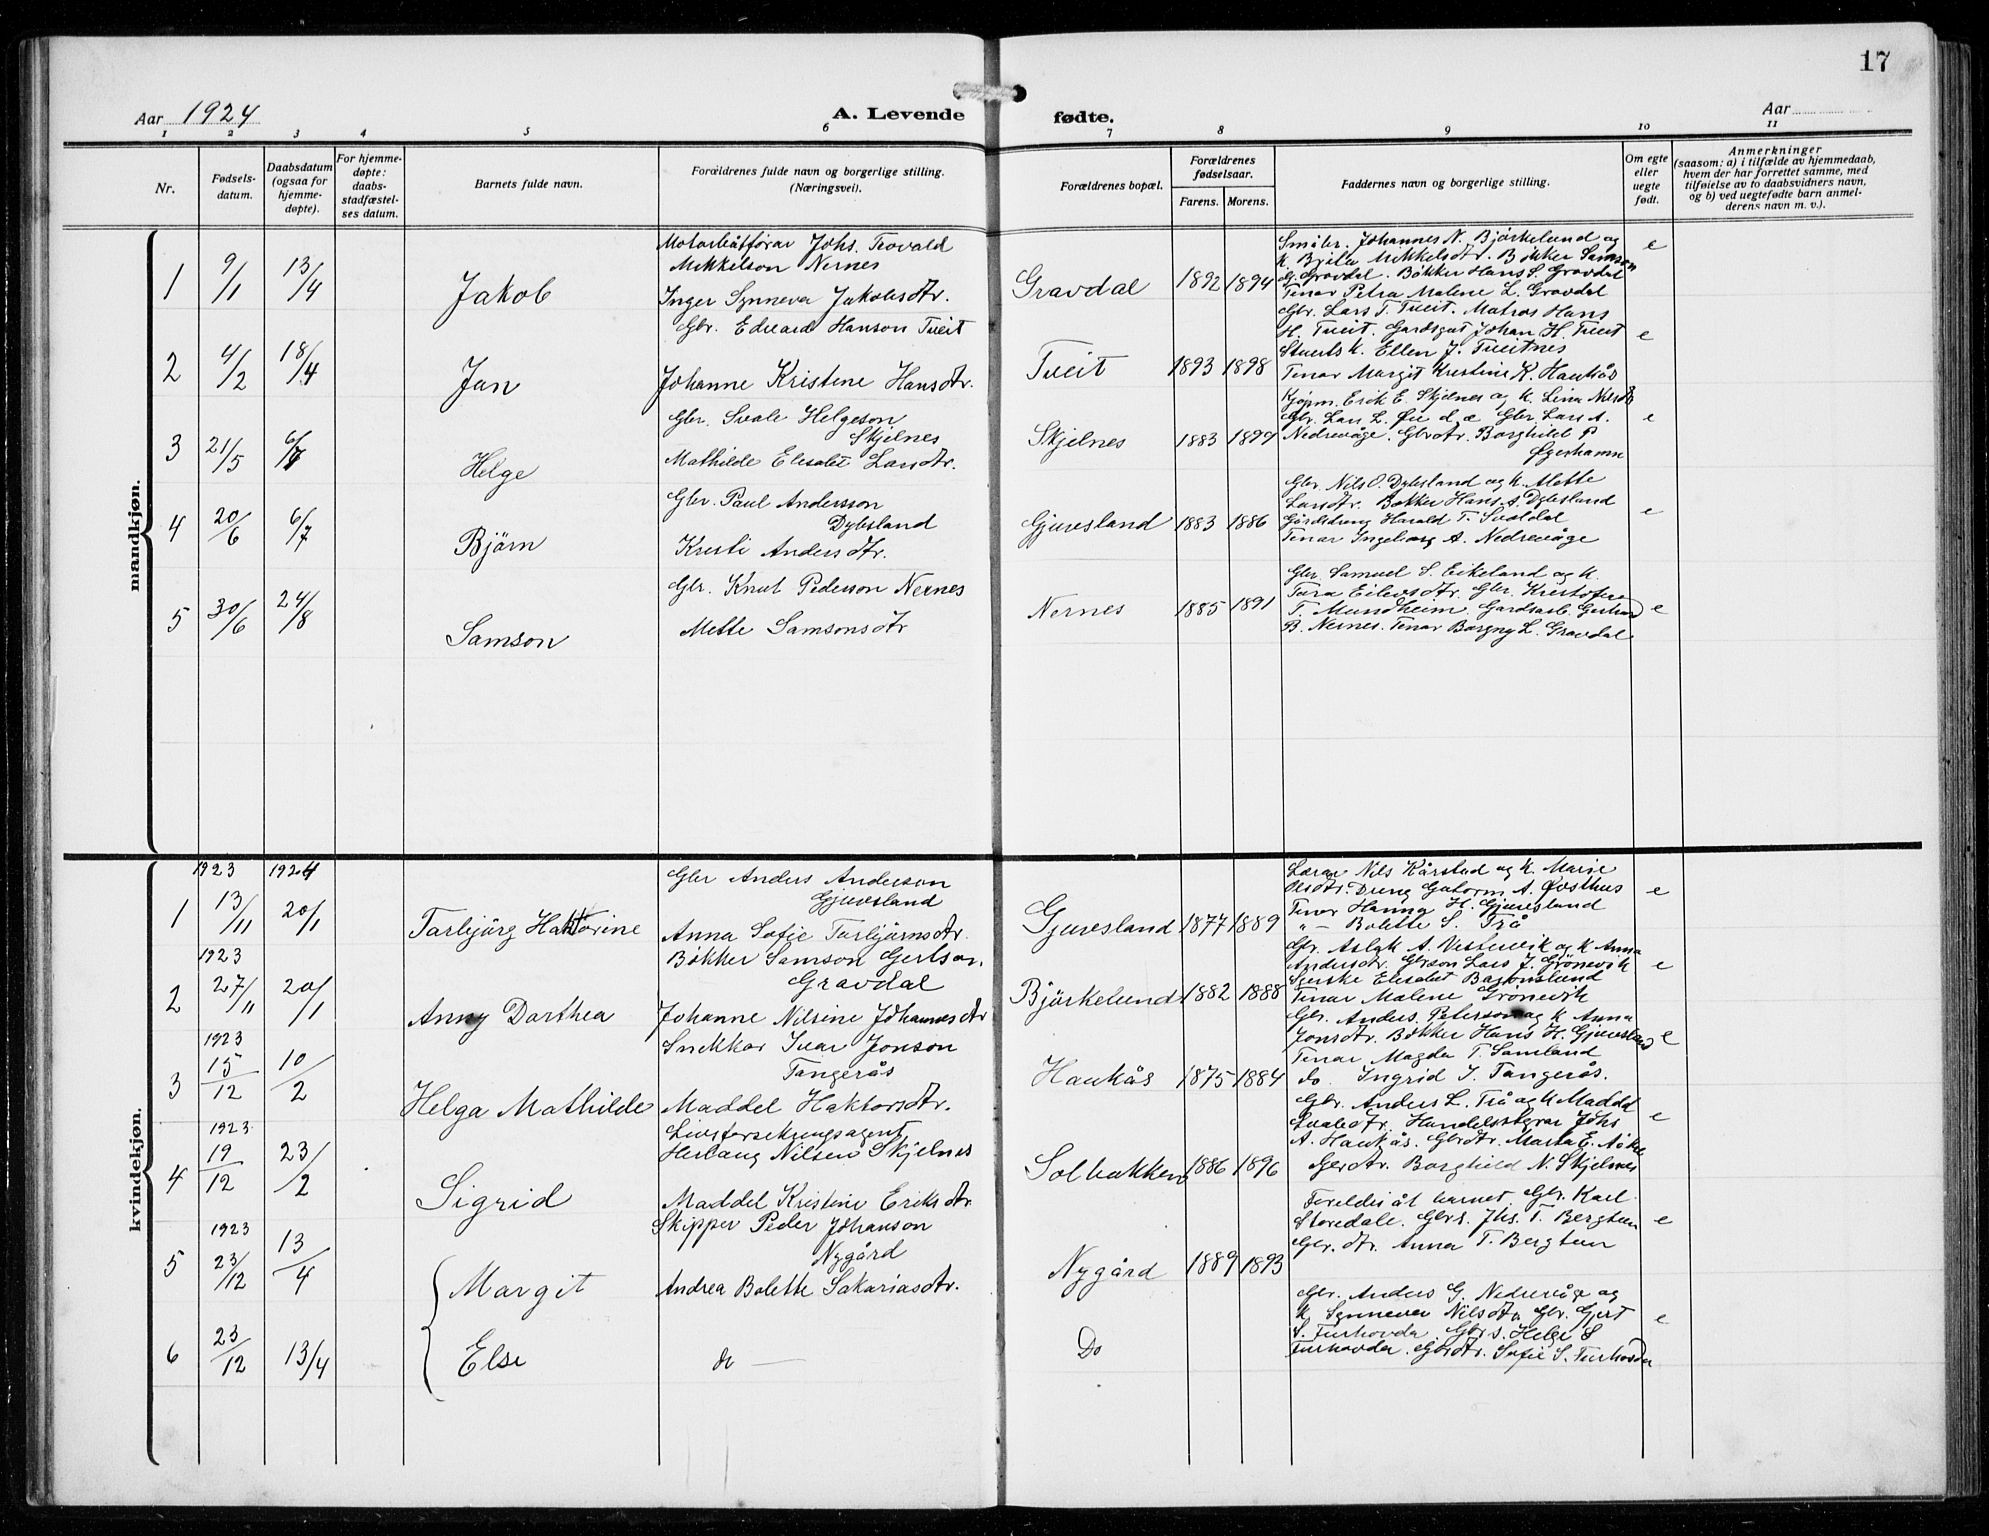 17
Aar 1924
A. Levende fødte.
Aar
1 2 3 4 5 6 7 8 9 10 11
Nr.
Fødsels-
datum.
Daabsdatum
(ogsaa for
hjemme-
døpte).
For hjemme-
døpte:
daabs-
stadfæstel-
ses datum.
Barnets fulde navn.
Forældrenes fulde navn og borgerlige stilling.
(Næringsvei).
Forældrenes bopæl.
Forældrenes
fødselsaar.
Farens. Morens.
Faddernes navn og borgerlige stilling.
Om egte
eller
uegte
født.
Anmerkninger
(saasom: a) i tilfælde av hjemmedaab,
hvem der har forrettet samme, med
tilføielse av to daabsvidners navn,
og b) ved uegtefødte barn anmel-
derens navn m. v.).
mandkjøn.
1 9/1 13/4 Jakob
Motorbåtförar Johs. Trovald
Mikkelson Nernes
Inger Synneva Jakobsdtr.
Gravdal 1892 1894
Småbr. Johannes N. Björkelund og
K. Brita Mikkelsdtr. Bökker Samson
G. Gravdal. Bökker Hans S. Gravdal
Tenar Petra Malene L. Gravdal
e
2 4/2 18/4 Jan
Gbr. Edvard Hanson Tveit
Johanne Kristine Hansdtr.
Tveit 1893 1898
Gbr. Lars T. Tveit. Matros Hans
H. Tveit. Gardsgut Johan H. Tveit
Stuerts k. Ellen J. Tveitnes
Tenar Margit Kristine K. Haukås
e
3 21/5 6/7 Helge
Gbr. Svale Helgeson
Skjelnes
Mathilde Elisabet Larsdtr.
Skjelnes 1883 1899
Kjöpm. Erik E. Skjelnes og K. Lina Nilsdtr
Gbr. Lars L. Øie d. æ. Gbr. Lars A.
Nedrevåge. Gbrdtr. Borghild P
Øyerhamn
e
4 20/6 6/7 Björn
Gbr. Paul Andersson
Dylesland
Kristi Andersdtr.
Gjuvsland 1883 1886
Gbr. Nils O. Dybesland og K. Mette
Larsdtr. Bökker Hans A. Dybesland
Gårdsdreng Harald T. Svoldal
Tenar Ingeborg A. Nedrevåge
e
5 30/6 24/8 Samson
Gbr. Knut Pederson Nernes
Mette Samsonsdtr
Nernes 1885 1891
Gbr. Samuel S. Eikeland og K.
Tura Eilevsdtr. Gbr. Kristofer
T. Mundheim. Gardsarb. Gerhard
B. Nernes. Tenar Borgny L. Gravdal
e
kvindekjøn.
1923 1924
1 13/11 20/1 Torbjörg Haktorine
Gbr Anders Anderson
Gjuvsland
Anna Sofie Torbjörnsdtr.
Gjuvsland 1877 1889
Lærar Nils Kårstad og K. Marie
Olsdtr. Dreng Gutorm A. Østhus
Tenar Hanna H. Gjuvsland
" - Bolette S. Trå
e
1923
2 27/11 20/1 Anny Dorthea
Bökker Samson Gertson
Gravdal
Johanne Nilsine Johannesdtr
Björkelund 1882 1888
Gbr. Aslak A. Vestervik og K Anna
Andersdtr. Gbrson Lars J. Grönevik
Syerske Elisabet Basmesland
Tenar Malene Grönevik
e
1923
3 15/12 10/2 Helga Mathilde
Snekkar Ivar Jonson
Tangerås
Maddel Haktorsdtr.
Haukås 1875 1884
Gbr. Anders Peterson og K Anna
Jonsdtr. Bökker Hans H. Gjuvsland
Tenar Magda T. Samland
do. Ingrid I. Tangerås.
e
1923
4 19/12 23/2 Sigrid
Livsforsekringsagent
Herlaug Nilsen Skjelnes
Maddel Kristine Eriksdtr
Solbakken 1886 1896
Gbr. Anders L. Trå og K Maddel
Svaledtr. Handelsstyrar Johs
A. Haukås. Gbrdtr. Marta E. Aake
Gbrdtr. Borghild N. Skjelnes
e
1923
5 23/12 13/4 Margit
Skipper Peder Johanson
Nygård
Andrea Bolette Sakariasdtr.
Nygård 1889 1893
Foreldri åt barnet. Gbr. Karl
Storedale. Gbrs. Jhs. T. Bergtun
Gbr. dtr. Anna T. Bergtun
e
6 23/12 13/4 Else
do —
Do
Gbr. Anders G. Nedrevåge og
K. Synneva Nilsdtr Gbr. Gjert
S. Furhovda. Gbr s. Helge S
Furhovda. Gbrdtr. Sofie S. Furhovda
e